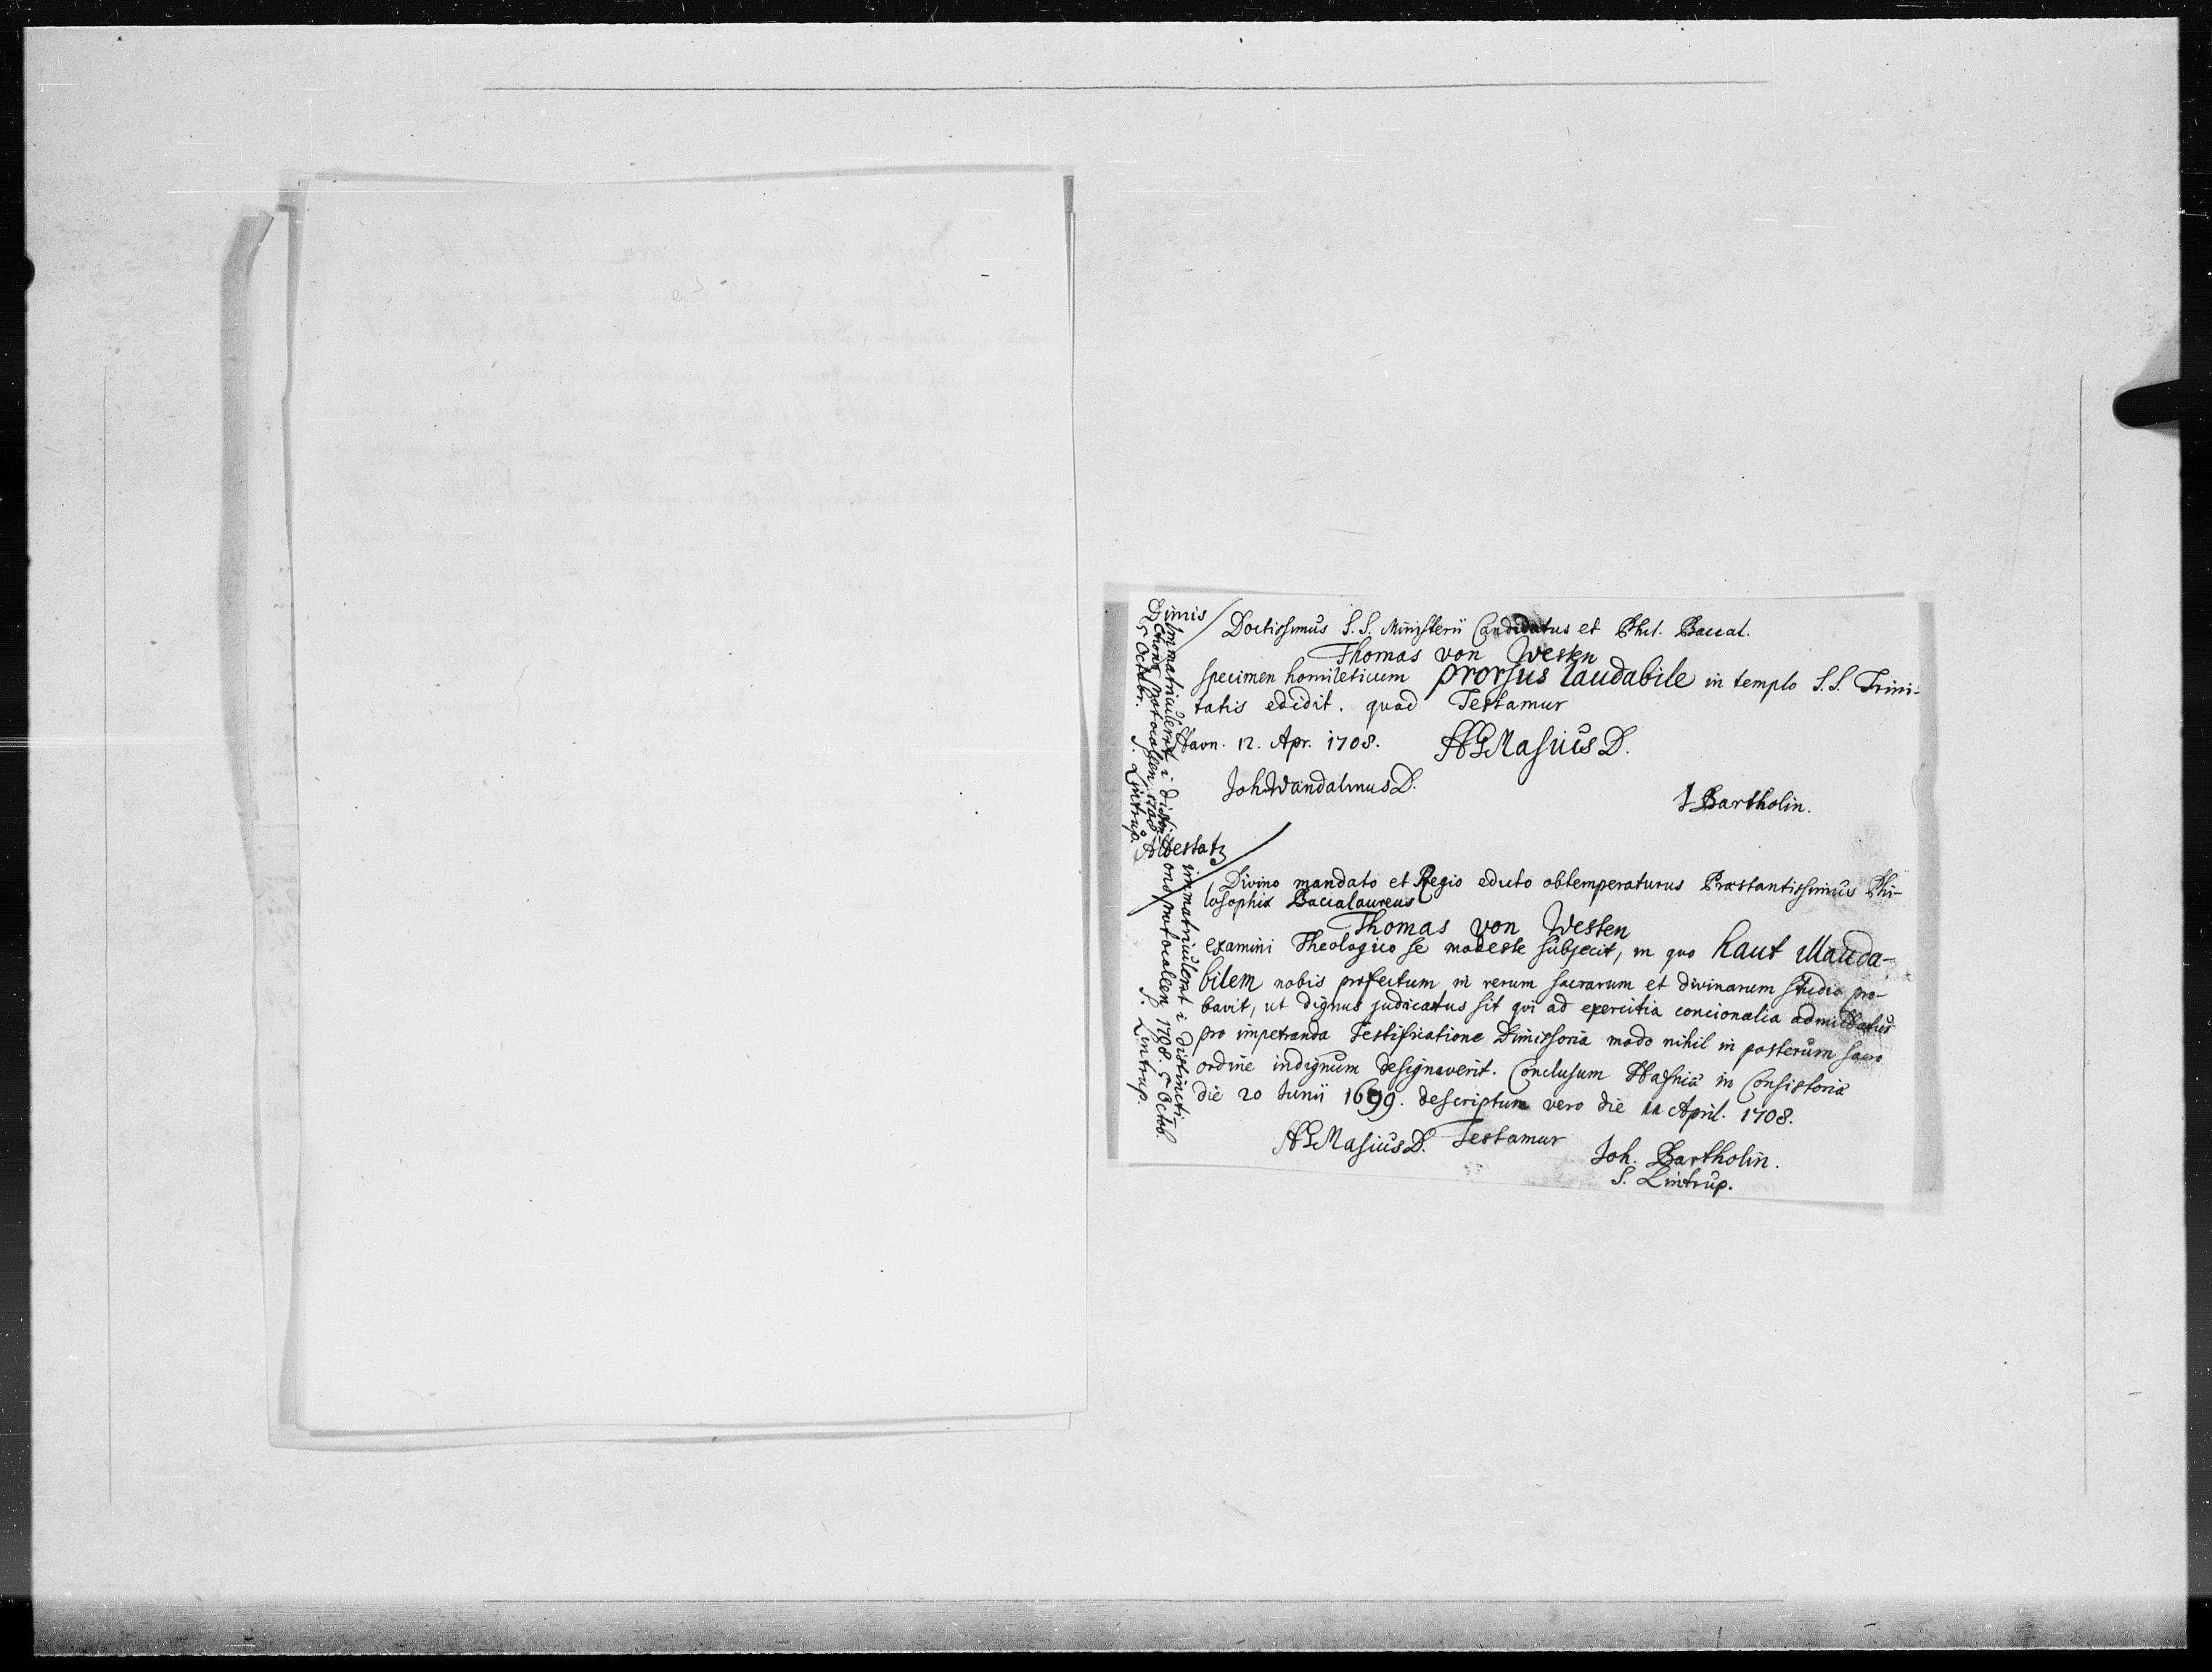 Dimis
Doctissimus S. S. Ministerii Candidatus et Phil. Baccal.
Thomas von Westen
specimen homileticum prorsus laudabile in templo S. S. Trini-
tatis edidit. quod Testamur
Havn. 12. Apr. 1708. HGMasius D.
Joh. Wandalinus D.
J Bartholin.
Immatriculerat i distin-
ctions protocollen 1708
5 Octobr. S. Lintrup.
Attestatz
Divino mandato et Regio edicto obtemperaturus Præstantissimus Phi-
losophiæ Baccalaureus
Thomas von Westen
examini Theologico se modeste subjecit, in quo haut illauda-
bilem nobis profectum in rerum sacrarum et divinarum studio pro-
bavit, ut dignus judicatus sit qui ad exercitia concionalia admittatur
pro impetranda Testificatione Dimissoria modo nihil in posterum sacro
ordine indignum designaverit. Conclusum Hafniæ in Consistorio
die 20 Junii 1699. descriptum vero die 11 April. 1708.
HGMasius D. Testamur
Joh. Bartholin.
S. Lintrup.
immatriculerat i distincti-
ons protocollen 1708. 5 Octob.
S. Lintrup.